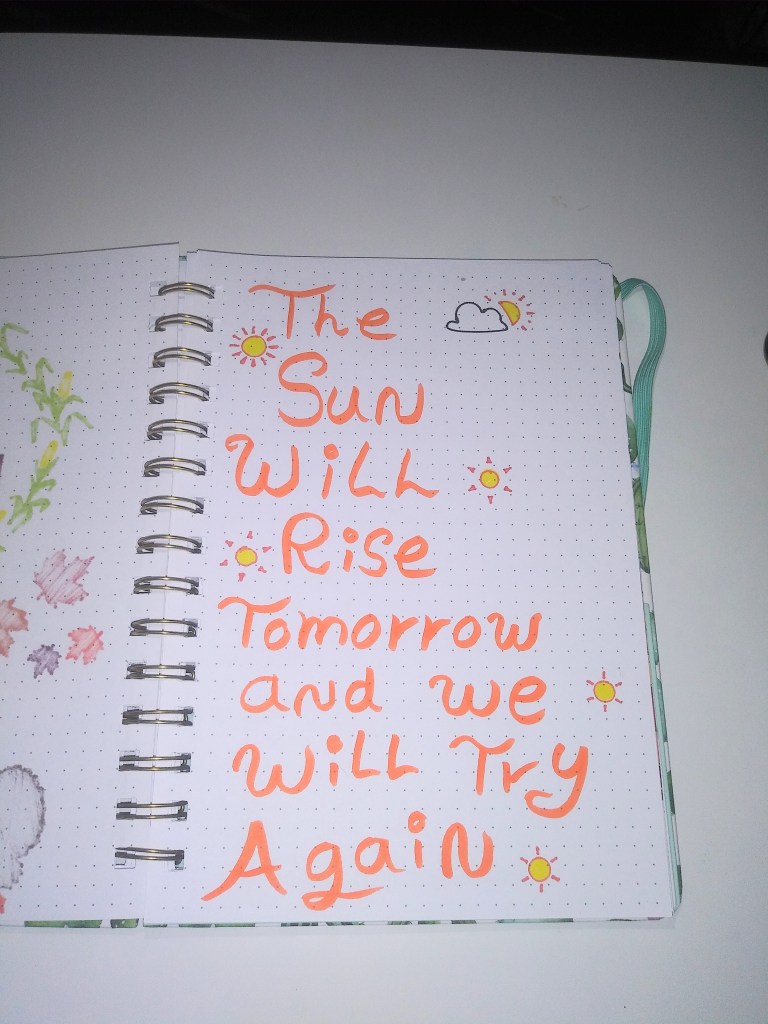 The
Sun
Will
Rise
Tomorrow
and we
Will Try
Again